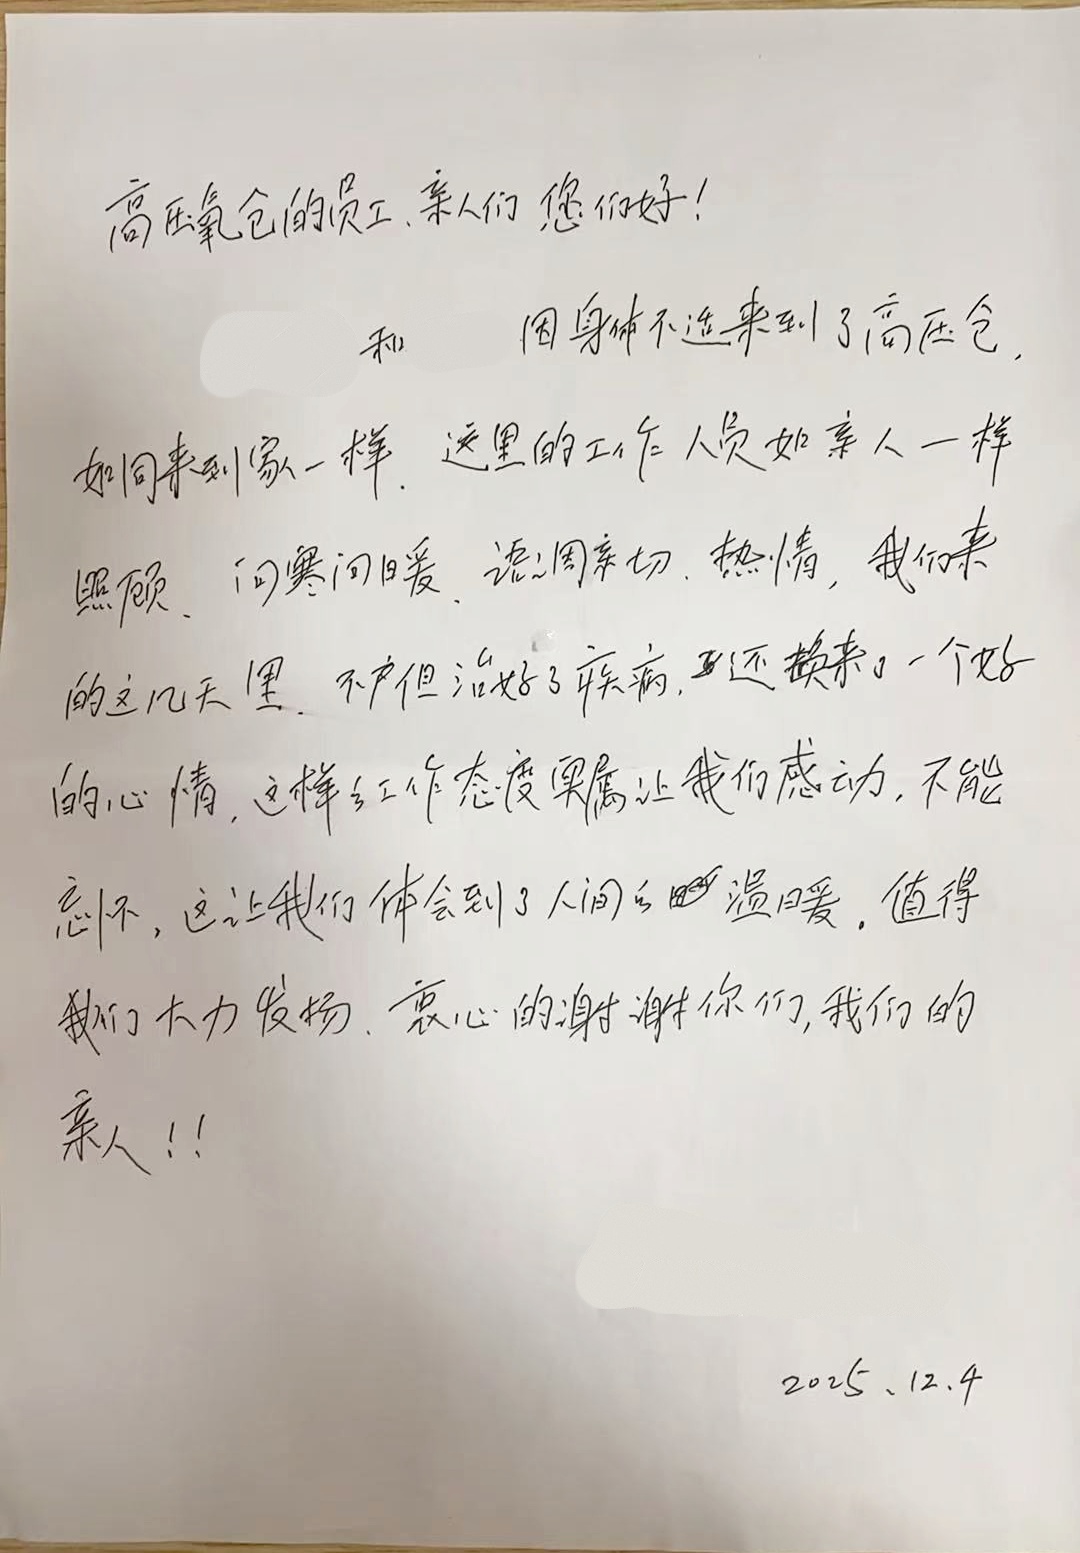 高压氧仓的员工、亲人们 您们好!
和 因身体不适来到了高压仓,
如同来到家一样、这里的工作人员如亲人一样
照顾、问寒问暖、语调亲切、热情,我们来
的这几天里、不但治好了疾病,还换来了一个好
的心情,这样的工作态度实属让我们感动,不能
忘怀,这让我们体会到了人间的温暖。值得
我们大力发扬、衷心的谢谢你们,我们的
亲人!!
2025、12.4